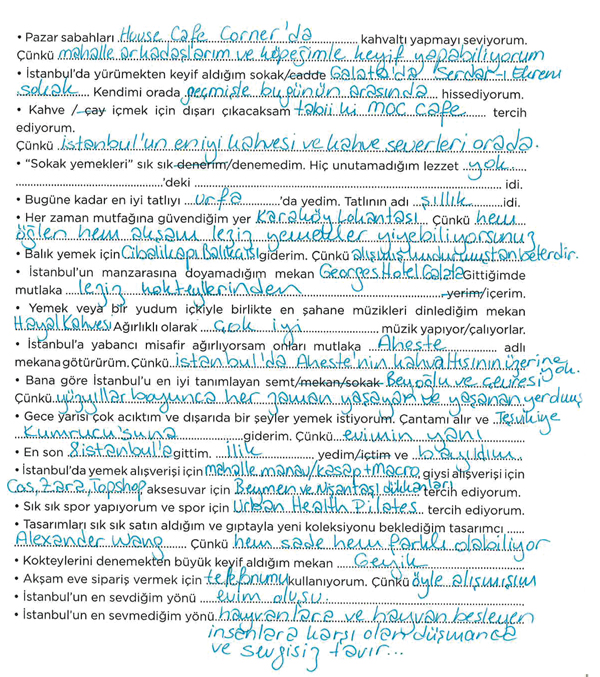 • Pazar sabahları House Cafe Corner'da kahvaltı yapmayı seviyorum.
Çünkü mahalle arkadaşlarım ve köpeğimle keyif yapabiliyorum
• İstanbul'da yürümekten keyif aldığım sokak/cadde Galata'da Serdar-ı Ekrem
sokak. Kendimi orada geçmişle bugünün arasında hissediyorum.
• Kahve / çay içmek için dışarı çıkacaksam tabii ki MOC cafe tercih
ediyorum.
Çünkü istanbul'un en iyi kahvesi ve kahve severleri orada.
• "Sokak yemekleri" sık sık denerim/denemedim. Hiç unutamadığım lezzet yok.
'deki idi.
• Bugüne kadar en iyi tatlıyı urfa 'da yedim. Tatlının adı şıllık idi.
• Her zaman mutfağına güvendiğim yer Karaköy Lokantası Çünkü hem
öğlen hem akşam leziz yemekler yiyebiliyorsunuz
• Balık yemek için Cibalikapı Balıkçısı giderim. Çünkü
• İstanbul'un manzarasına doyamadığım mekan Georges Hotel Galata Gittiğimde
mutlaka leziz kokteylerinden yerim/içerim.
• Yemek veya bir yudum içkiyle birlikte en şahane müzikleri dinlediğim mekan
Hayal Kahvesi Ağırlıklı olarak çok iyi müzik yapıyor/çalıyorlar.
• İstanbul'a yabancı misafir ağırlıyorsam onları mutlaka Aheste adlı
mekana götürürüm. Çünkü istanbul'da Aheste'nin kahvaltısının üzerine yok.
• Bana göre İstanbul'u en iyi tanımlayan semt/mekan/sokak Beyoğlu ve çevresi
Çünkü yüzyıllar boyunca her zaman yaşayan ve yaşanan yer olmuş
• Gece yarısı çok acıktım ve dışarıda bir şeyler yemek istiyorum. Çantamı alır ve Teşvikiye
Kumrucu'suna giderim. Çünkü evimin yanı
• En son 8 istanbul'a gittim. ilik yedim/içtim ve bayıldım
• İstanbul'da yemek alışverişi için mahalle manav/kasap+Macro, giysi alışverişi için
Cos, Zara, Topshop aksesuvar için Beymen ve Nişantaşı dükkanları tercih ediyorum.
• Sık sık spor yapıyorum ve spor için Urban Health Pilates tercih ediyorum.
• Tasarımları sık sık satın aldığım ve gıptayla yeni koleksiyonu beklediğim tasarımcı
Alexander Wang Çünkü hem sade hem farklı olabiliyor
• Kokteylerini denemekten büyük keyif aldığım mekan Geyik
• Akşam eve sipariş vermek için telefonumu kullanıyorum. Çünkü öyle alışmışım
• İstanbul'un en sevdiğim yönü evim oluşu.
• İstanbul'un en sevmediğim yönü hayvanlara ve hayvan besleyen
insanlara karşı olan düşmanca
ve sevgisiz tavır...